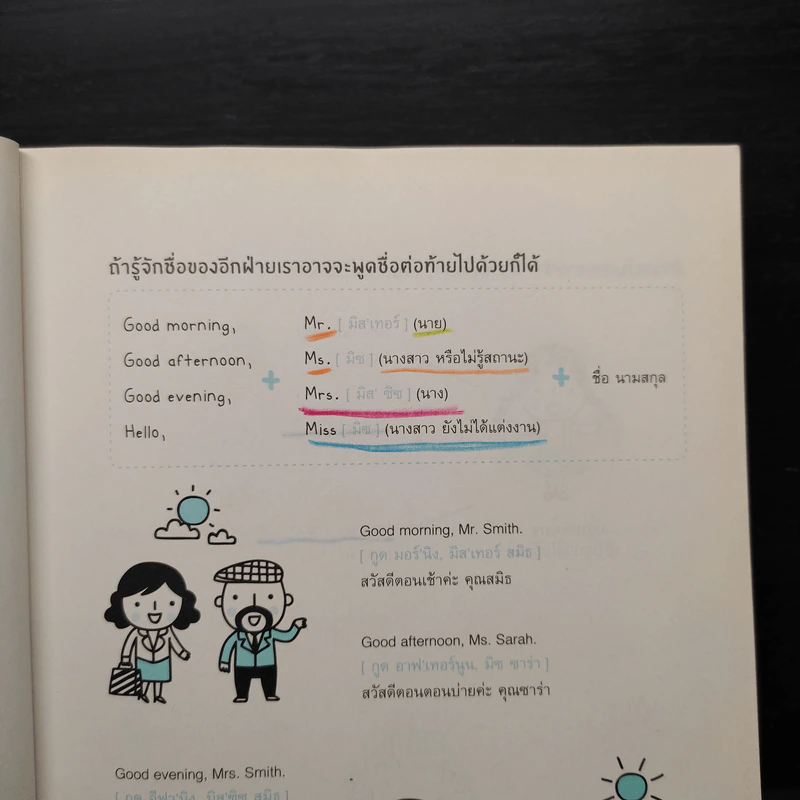 ถ้ารู้จักชื่อของอีกฝ่ายเราอาจจะพูดชื่อต่อท้ายไปด้วยก็ได้
Good morning,
Good afternoon,
Good evening,
Hello,
+
Mr. [ มิส'เทอร์ ] (นาย)
Ms. [ มิซ ] (นางสาว หรือไม่รู้สถานะ)
Mrs. [ มิส' ซิซ ] (นาง)
Miss [ มิซ ] (นางสาว ยังไม่ได้แต่งงาน)
+
ชื่อ นามสกุล
Good morning, Mr. Smith.
[ กูด มอร์'นิง, มิส'เทอร์ สมิธ ]
สวัสดีตอนเช้าค่ะ คุณสมิธ
Good afternoon, Ms. Sarah.
[ กูด อาฟ'เทอร์นูน, มิซ ซาร่า ]
สวัสดีตอนตอนบ่ายค่ะ คุณซาร่า
Good evening, Mrs. Smith.
[ กูด อีฟว'นิง, มิส'ซิซ สมิธ ]